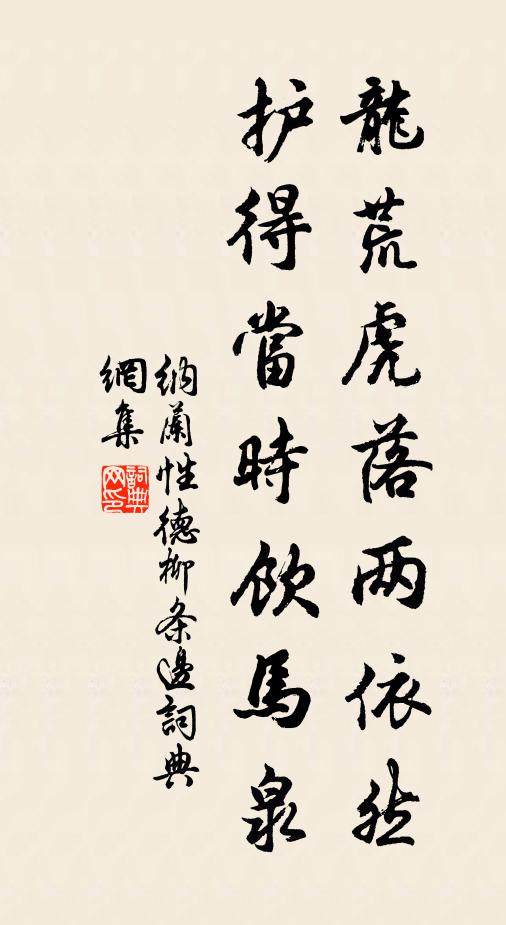 龍荒虎落两依然
护得當時飲馬泉
納蘭性德柳条邊詞典
網集
詞典
网印